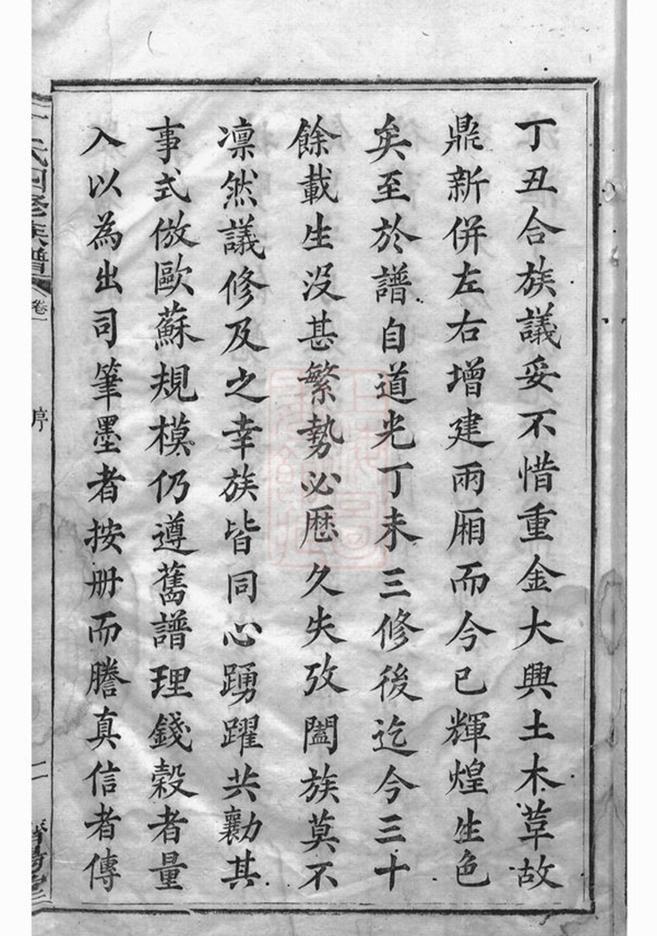 丁丑合族議妥不惜重金大興土木革故
鼎新併左右增建兩廂而今已輝煌生色
矣至於譜自道光丁未三修後迄今三十
餘載生没甚繁勢必歷久失攷闔族莫不
凛然議修及之幸族皆同心踴躍共勷其
事式倣歐蘇規模仍遵舊譜理錢穀者量
入以為出司筆墨者按册而謄真信者傳
氏四修族譜
卷一
序